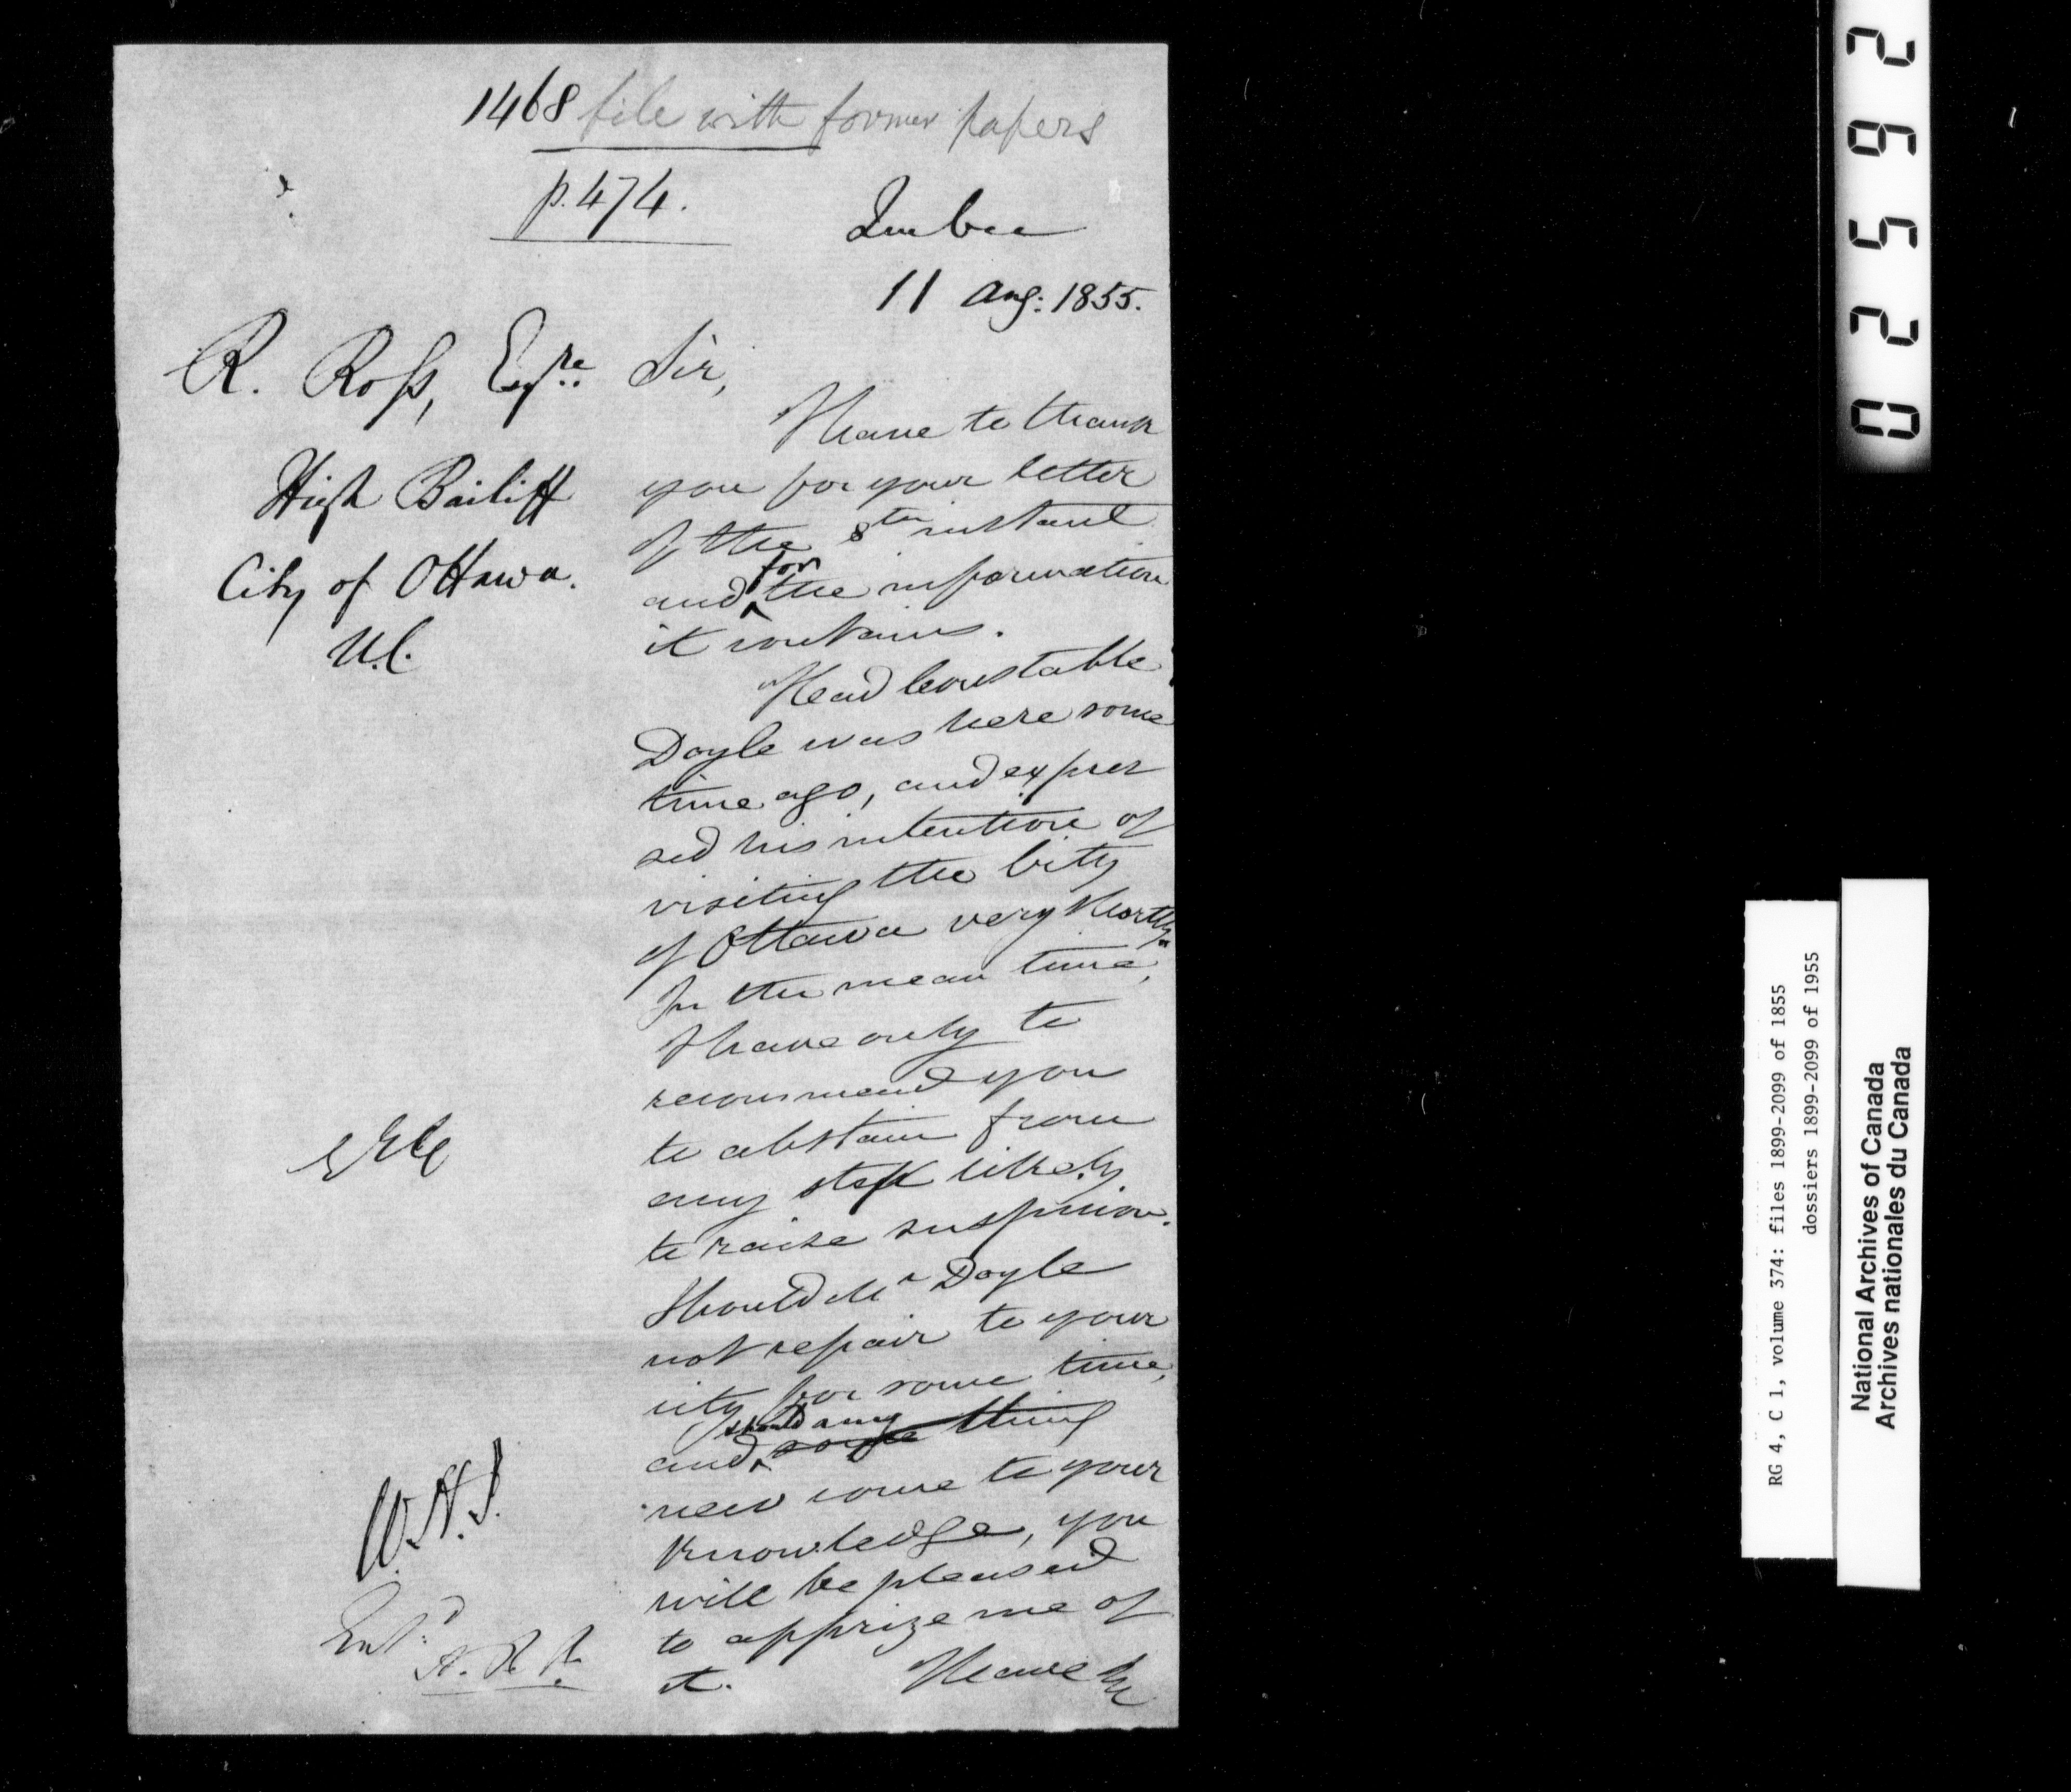 1468 file with former papers
p. 474.
Quebec
11 Aug: 1855.
R. Ross, Esqre
High Bailiff
City of Ottawa.
U.C.
Sir,
I have to thank
you for your letter
of the 8th instant
and for the information
it contains.
Head Constable
Doyle was here some
time ago, and expres
sed his intention of
visiting the City
of Ottawa very shortly.
In the mean time,
I have only to
recommend you
to abstain from
any step likely
to raise suspicion.
Should Mr Doyle
not repair to your
city for some time,
and should any some thing
new come to your
knowledge, you
will be pleased
to apprize me of
it. I have &c
W.H.J.
Entd.
02592
RG 4, C 1, volume 374: files 1899-2099 of 1855
dossiers 1899-2099 of 1955
National Archives of Canada
Archives nationales du Canada